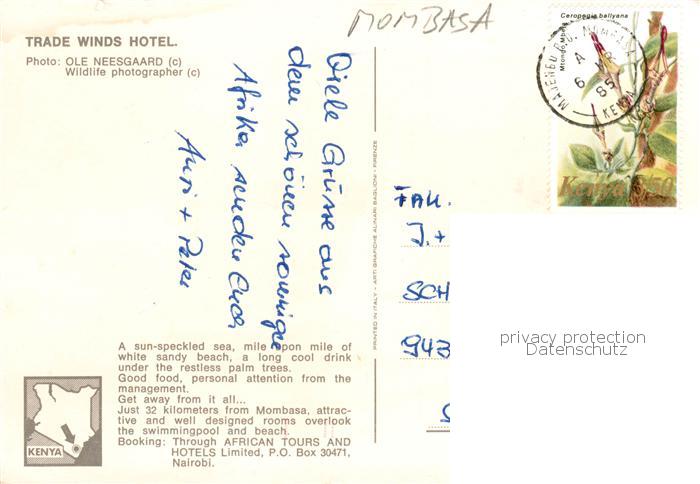 MOMBASA
TRADE WINDS HOTEL.
Photo: OLE NEESGAARD (c)
Wildlife photographer (c)
Viele Grüsse aus
dem schönen sonnigen
Afrika senden Euch
+ Peter
A sun-speckled sea, mile upon mile of
white sandy beach, a long cool drink
under the restless palm trees.
Good food, personal attention from the
management.
Get away from it all...
Just 32 kilometers from Mombasa, attrac-
tive and well designed rooms overlook
the swimmingpool and beach.
Booking: Through AFRICAN TOURS AND
HOTELS Limited, P.O. Box 30471,
Nairobi.
KENYA
PRINTED IN ITALY - ARTI GRAFICHE ALINARI BAGLIONI - FIRENZE
Ceropegia ballyana
Mtongo Mbeja
Kenya
MAJENGO P.O. MOMBASA
A
6
85
KENYA
FAM.
J. +
SCH
943
privacy protection
Datenschutz